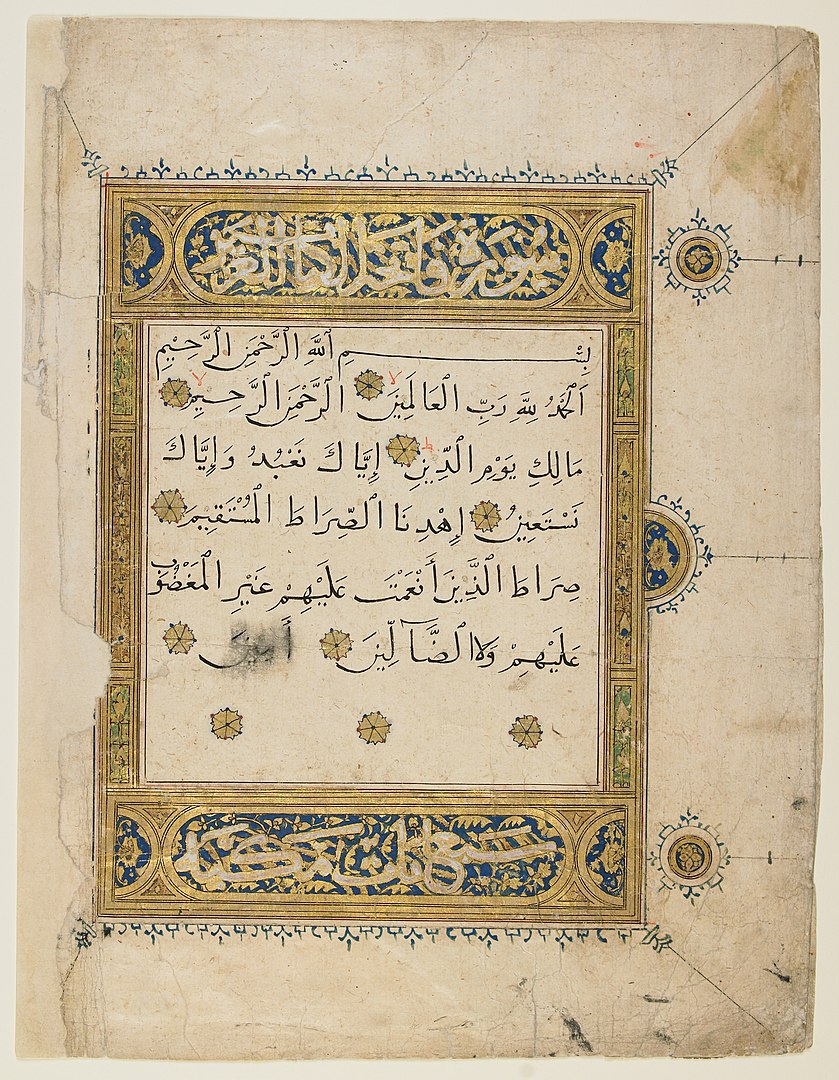 سورة فاتحة الكتاب
بِسْمِ ٱللَّهِ الرَّحْمَنِ الرَّحِيمِ
اَلْحَمْدُ لِلَّهِ رَبِّ الْعَالَمِينَ لا الرَّحْمَنِ الرَّحِيمِ لا
مَالِكِ يَوْمِ الدِّينِ ط إِيَّاكَ نَعْبُدُ وَإِيَّاكَ
نَسْتَعِينُ إِهْدِنَا الصِّرَاطَ الْمُسْتَقِيمَ
صِرَاطَ الَّذِينَ أَنْعَمْتَ عَلَيْهِمْ غَيْرِ الْمَغْضُوبِ
عَلَيْهِمْ وَلَا الضَّآلِّينَ أَمِينَ
سبع ايات مكية